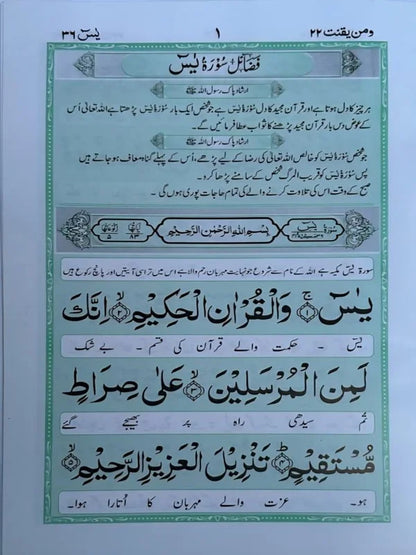 ومن یقنت ٢٢
١
یٰسٓ ٣٦
فضائل سُوْرَۃُ یٰسٓ
ارشاد پاک رسول اللہ ﷺ
ہر چیز کا دل ہوتا ہے اور قرآن مجید کا دل سُوْرَۃُ یٰسٓ ہے جو شخص ایک بار سُوْرَۃُ یٰسٓ پڑھتا ہے اللہ تعالیٰ اُس
کے عوض دس بار قرآن مجید پڑھنے کا ثواب عطا فرمائیں گے۔
ارشاد پاک رسول اللہ ﷺ
جو شخص سُوْرَۃُ یٰسٓ کو خالص اللہ تعالیٰ کی رضا کے لیے پڑھے، اُس کے پہلے گناہ معاف ہو جاتے ہیں
پس سُوْرَۃُ یٰسٓ کو قریب المرگ شخص کے سامنے پڑھا کرو۔
صبح کے وقت اس کی تلاوت کرنے والے کی تمام حاجات پوری ہوں گی۔
بِسْمِ اللهِ الرَّحْمٰنِ الرَّحِيْمِ
سورۃ یٰسٓ مکیہ ہے اللہ کے نام سے شروع جو نہایت مہربان رحم والا ہے اس میں تراسی آیتیں اور پانچ رکوع ہیں
يٰسٓ ۚ‏﴿١﴾ وَالْقُرْاٰنِ الْحَكِيْمِ ۙ‏﴿٢﴾ اِنَّكَ
یٰس ۔ حکمت والے قرآن کی قسم ۔ بے شک
لَمِنَ الْمُرْسَلِيْنَ ۙ‏﴿٣﴾ عَلٰى صِرَاطٍ
تم سیدھی راہ پر بھیجے گئے
مُّسْتَقِيْمٍ ؕ‏﴿٤﴾ تَنْزِيْلَ الْعَزِيْزِ الرَّحِيْمِ ۙ‏﴿٥﴾
ہو۔ عزت والے مہربان کا اُتارا ہوا۔